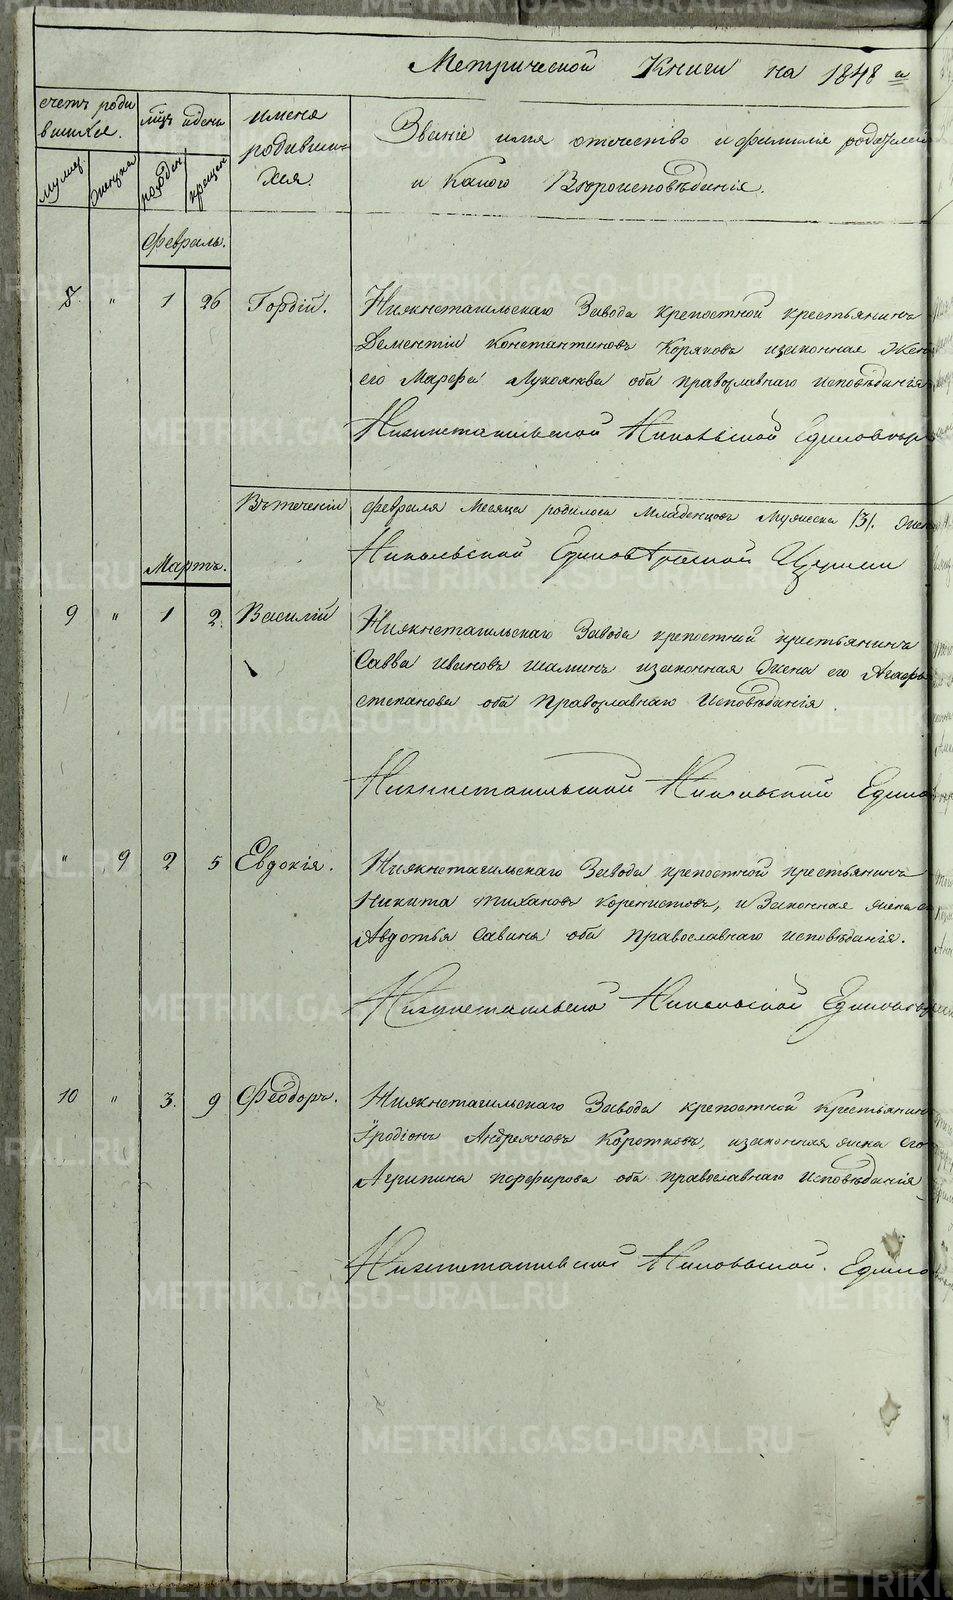 Метрической Книги на 1848 й
счетъ роди
вшихся.
мцъ и день
имена
родивших
хся.
Званіе имя отчество и фамиліе родителей
и какого Вероисповѣданія.
мужск
женска
рожден
крещен
Февраль.
8. " 1 26 Гордій. Нижнетагильскаго Завода крепостной крестьянинъ
Дементій Константиновъ Коряковъ изаконная Жен
его Марфа Лукоянова оба православнаго исповѣданія
Нижнетагильской Никольской Единовѣр
Въ теченіи февраля Месяца родилось Младенцовъ Мужеска /3/. Жен
Никольской Единоверческой Церкви
Мартъ.
9 " 1 2. Василій Нижнетагильскаго Завода крепостной крестьянинъ
Савва Ивановъ Шаминъ изаконная Жена его Агафь
степанова оба Православнаго Исповѣданія.
Нижнетагильской Никольской Едино
" 9 2 5 Евдокія. Нижнетагильскаго Завода крепостной крестьянинъ
Никита Тихановъ Коренистовъ, и Законная жена е
Авдотья Савина оба Православнаго исповѣданія.
Нижнетагильской Никольской Единовер
10 " 3. 9 Феодоръ. Нижнетагильскаго Завода крепостной Крестьянин
Іродіонъ Андреяновъ Коротковъ, изаконная жена Его
Агрипина порфирова оба православнаго Исповѣданія
Нижнетагильской Никольской. Едино
METRIKI.GASO-URAL.RU